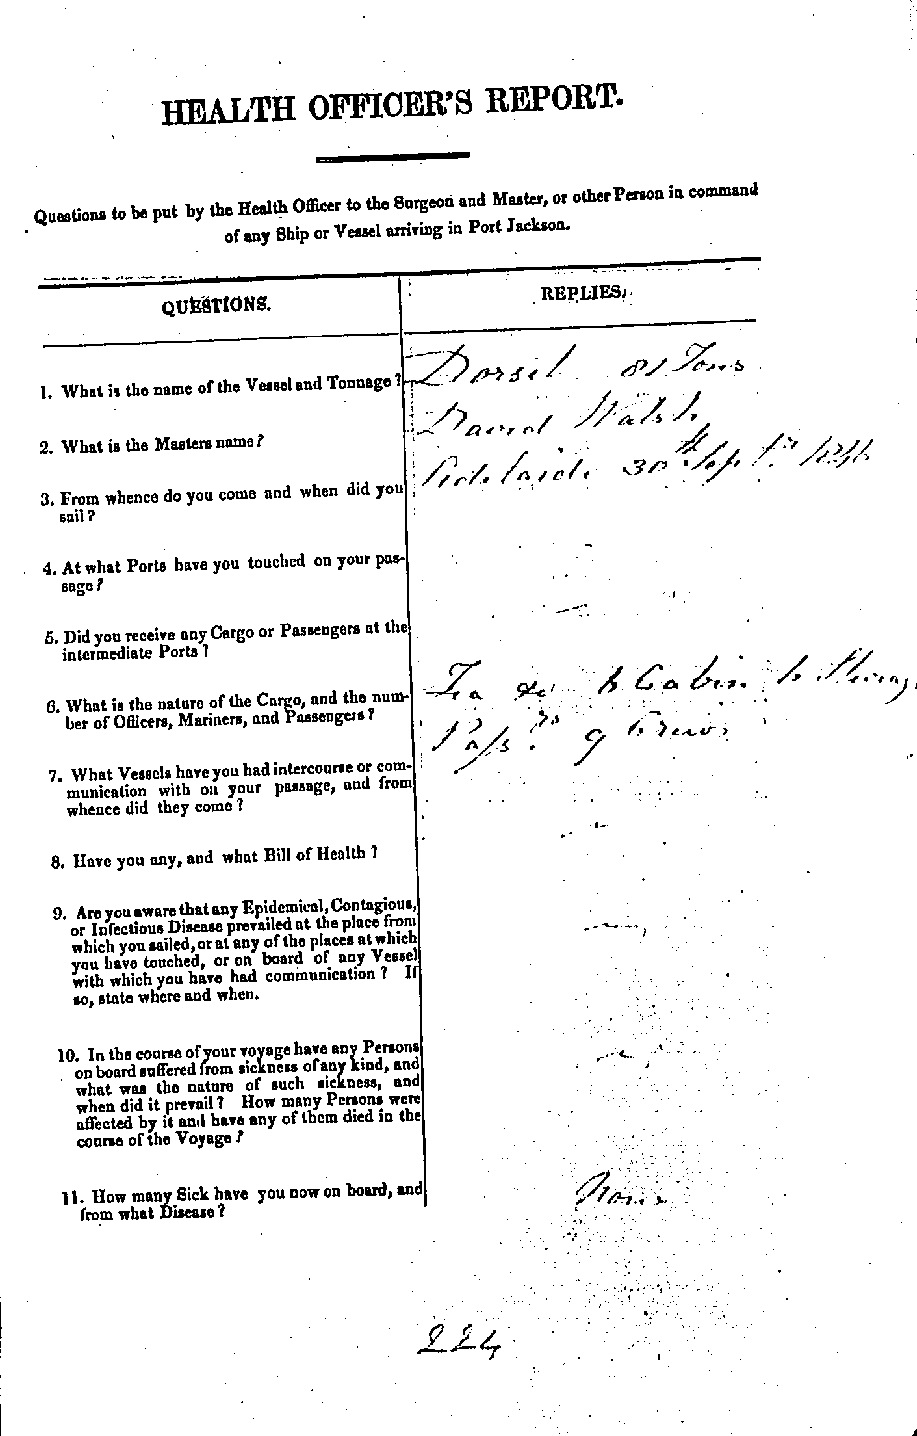 HEALTH OFFICER'S REPORT.
Questions to be put by the Health Officer to the Surgeon and Master, or other Person in command
of any Ship or Vessel arriving in Port Jackson.
QUESTIONS.
REPLIES.
1. What is the name of the Vessel and Tonnage?
Dorset 81 Tons
2. What is the Masters name?
David Walsh
3. From whence do you come and when did you
sail?
Adelaide 30th Sept.
4. At what Ports have you touched on your pas-
sage?
5. Did you receive any Cargo or Passengers at the
intermediate Ports?
6. What is the nature of the Cargo, and the num-
ber of Officers, Mariners, and Passengers?
Tea &c Cabin Steerage
Passrs. 9 Crew
7. What Vessels have you had intercourse or com-
munication with on your passage, and from
whence did they come?
8. Have you any, and what Bill of Health?
9. Are you aware that any Epidemical, Contagious,
or Infectious Disease prevailed at the place from
which you sailed, or at any of the places at which
you have touched, or on board of any Vessel
with which you have had communication? If
so, state where and when.
10. In the course of your voyage have any Persons
on board suffered from sickness of any kind, and
what was the nature of such sickness, and
when did it prevail? How many Persons were
affected by it and have any of them died in the
course of the Voyage?
11. How many Sick have you now on board, and
from what Disease?
None
224